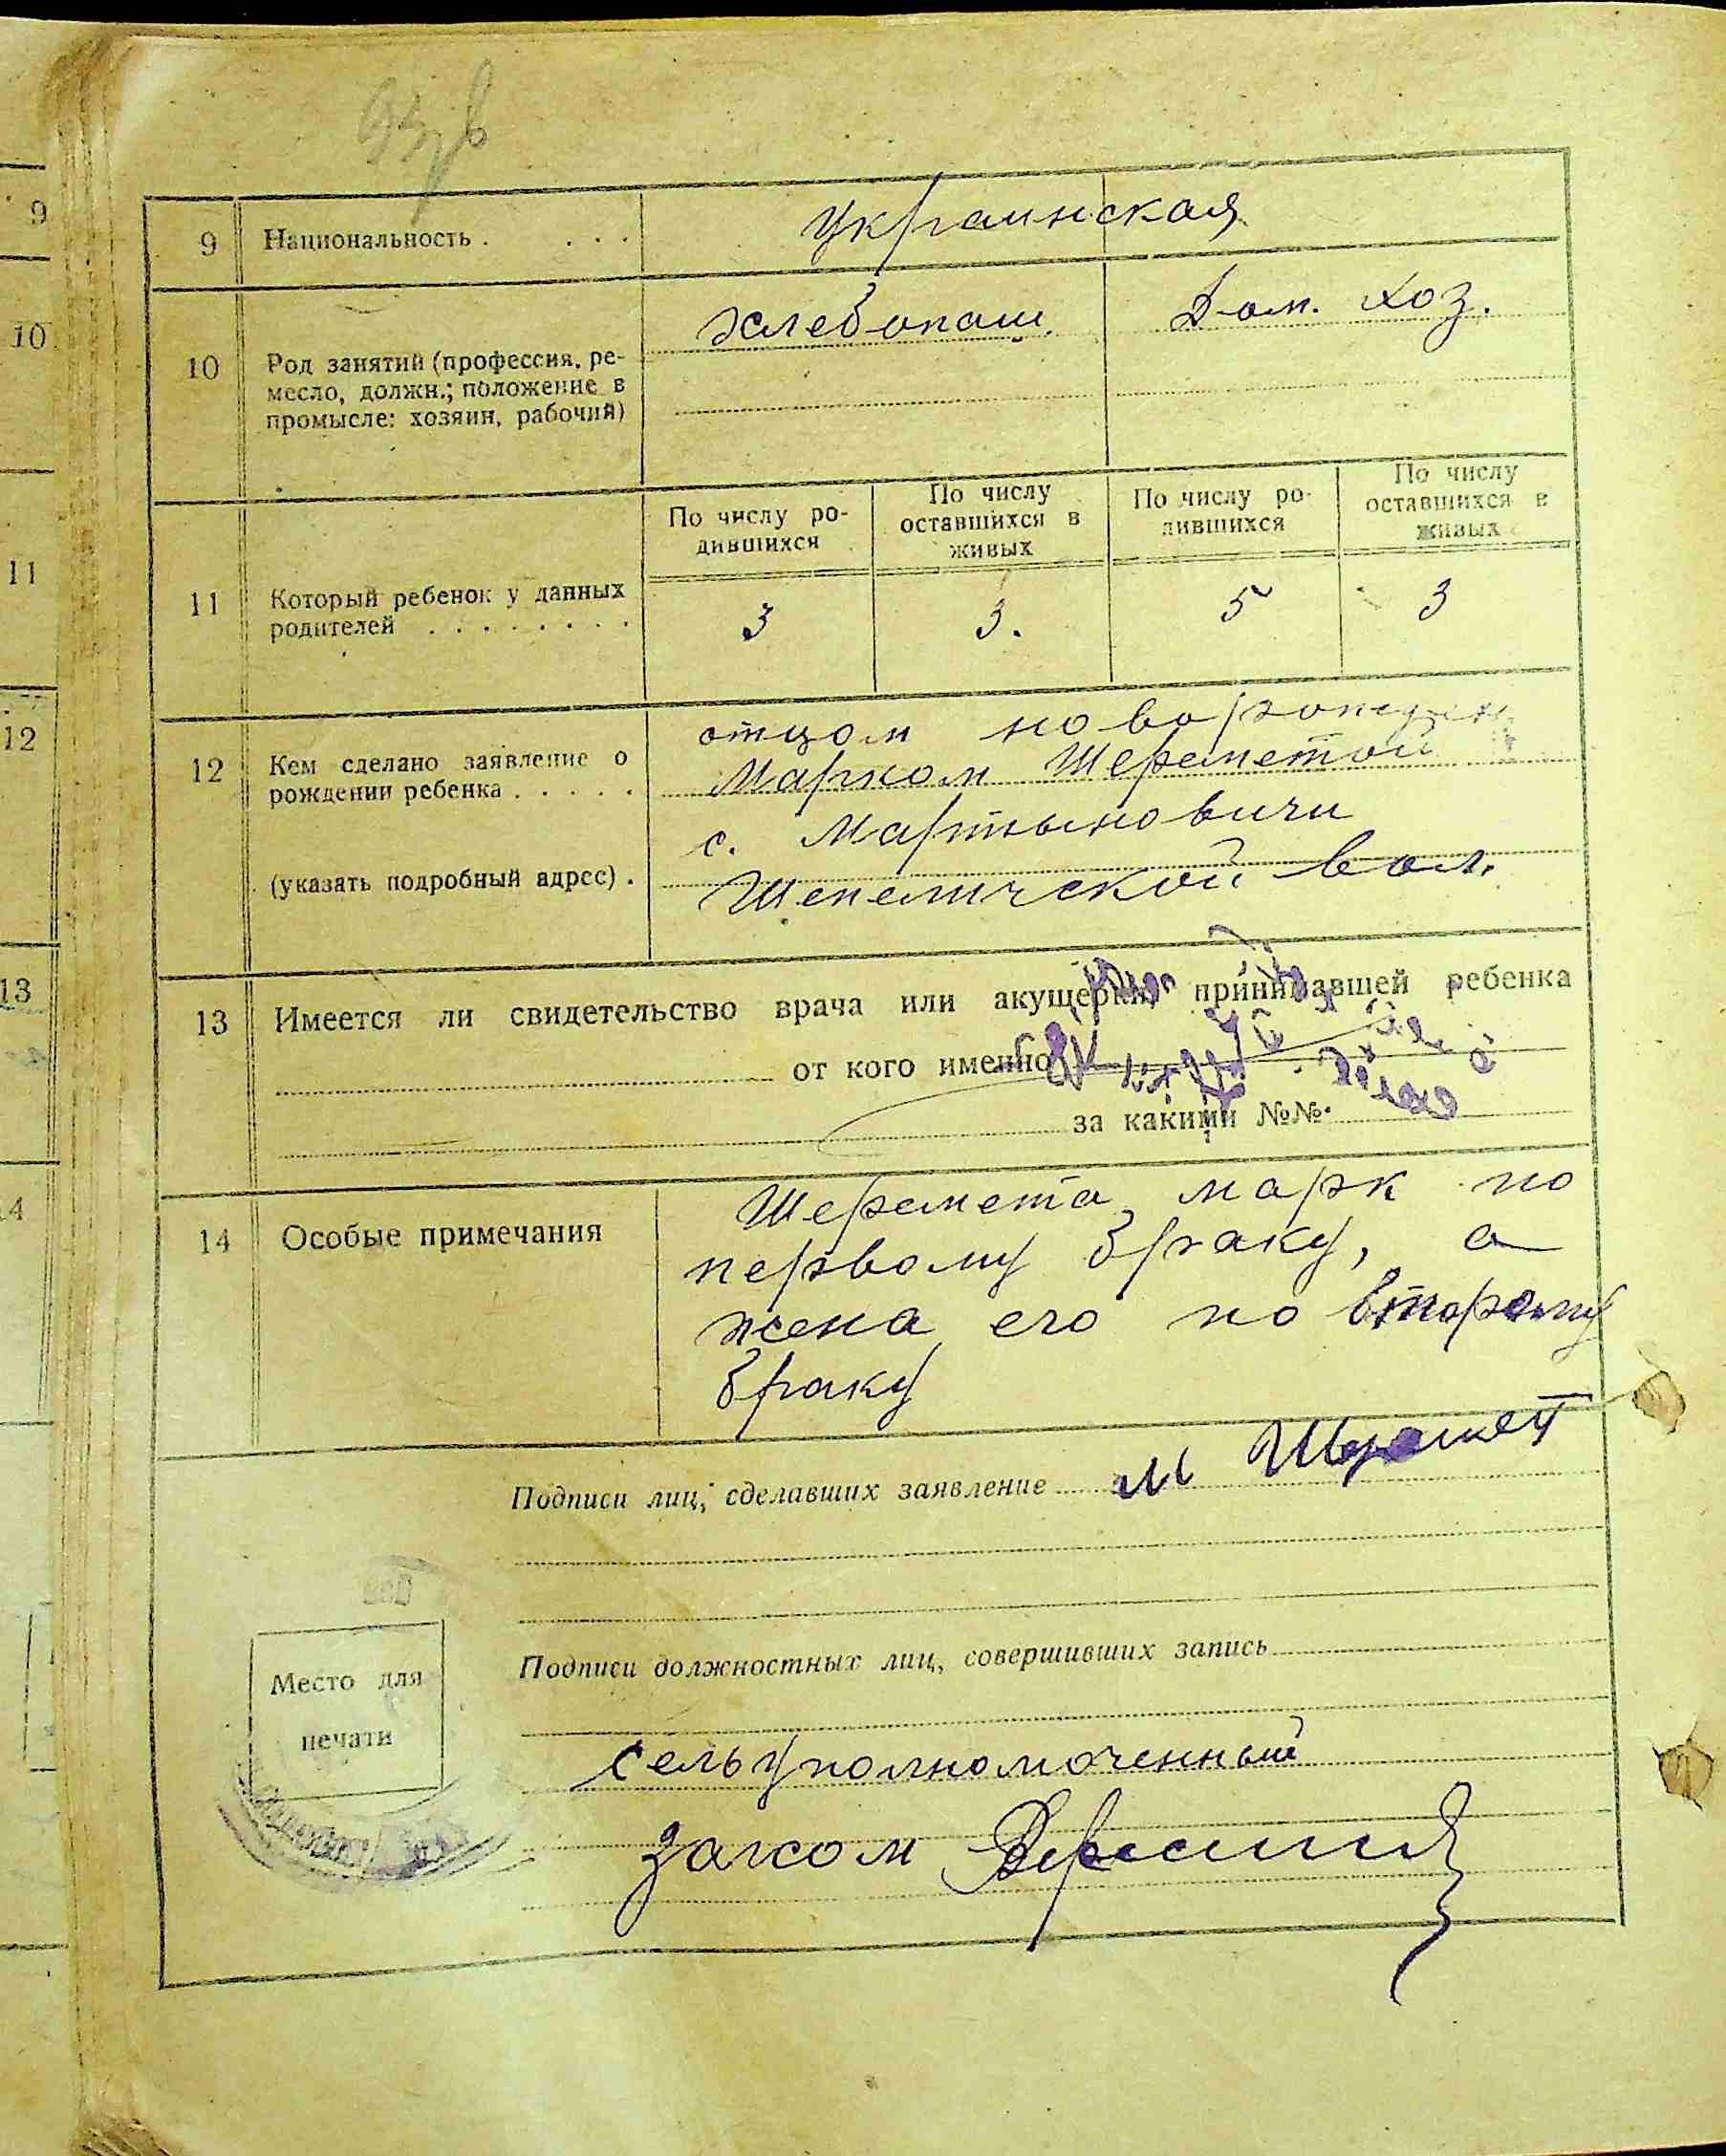 9
10
11
12
13
9 Национальность . . . . Украинская
10 Род занятий (профессия, ре-
месло, должн.; положение в
промысле: хозяин, рабочий)
хлебопаш. Дом. хоз.
По числу ро-
дившихся
По числу
оставшихся в
живых
По числу ро-
дившихся
По числу
оставшихся в
живых
11 Который ребенок у данных
родителей . . . . . . . .
3 3. 5 3
12 Кем сделано заявление о
рождении ребенка . . . . .
(указать подробный адрес) .
отцом
Марком Шереметой
с. Мартыновичи
Шепеличской вол.
13 Имеется ли свидетельство врача или акушерки, принимавшей ребенка
от кого именно
за какими №№
14 Особые примечания
Шеремета Марк по
первому браку, а
жена его по второму
браку
Подписи лиц, сделавших заявление М Шеремет
Подписи должностных лиц, совершивших запись
Место для
печати
сельуполномоченный
загсом